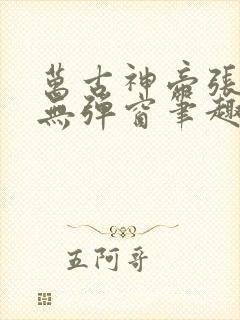 萬古神帝張
無彈窗筆趣
五阿哥